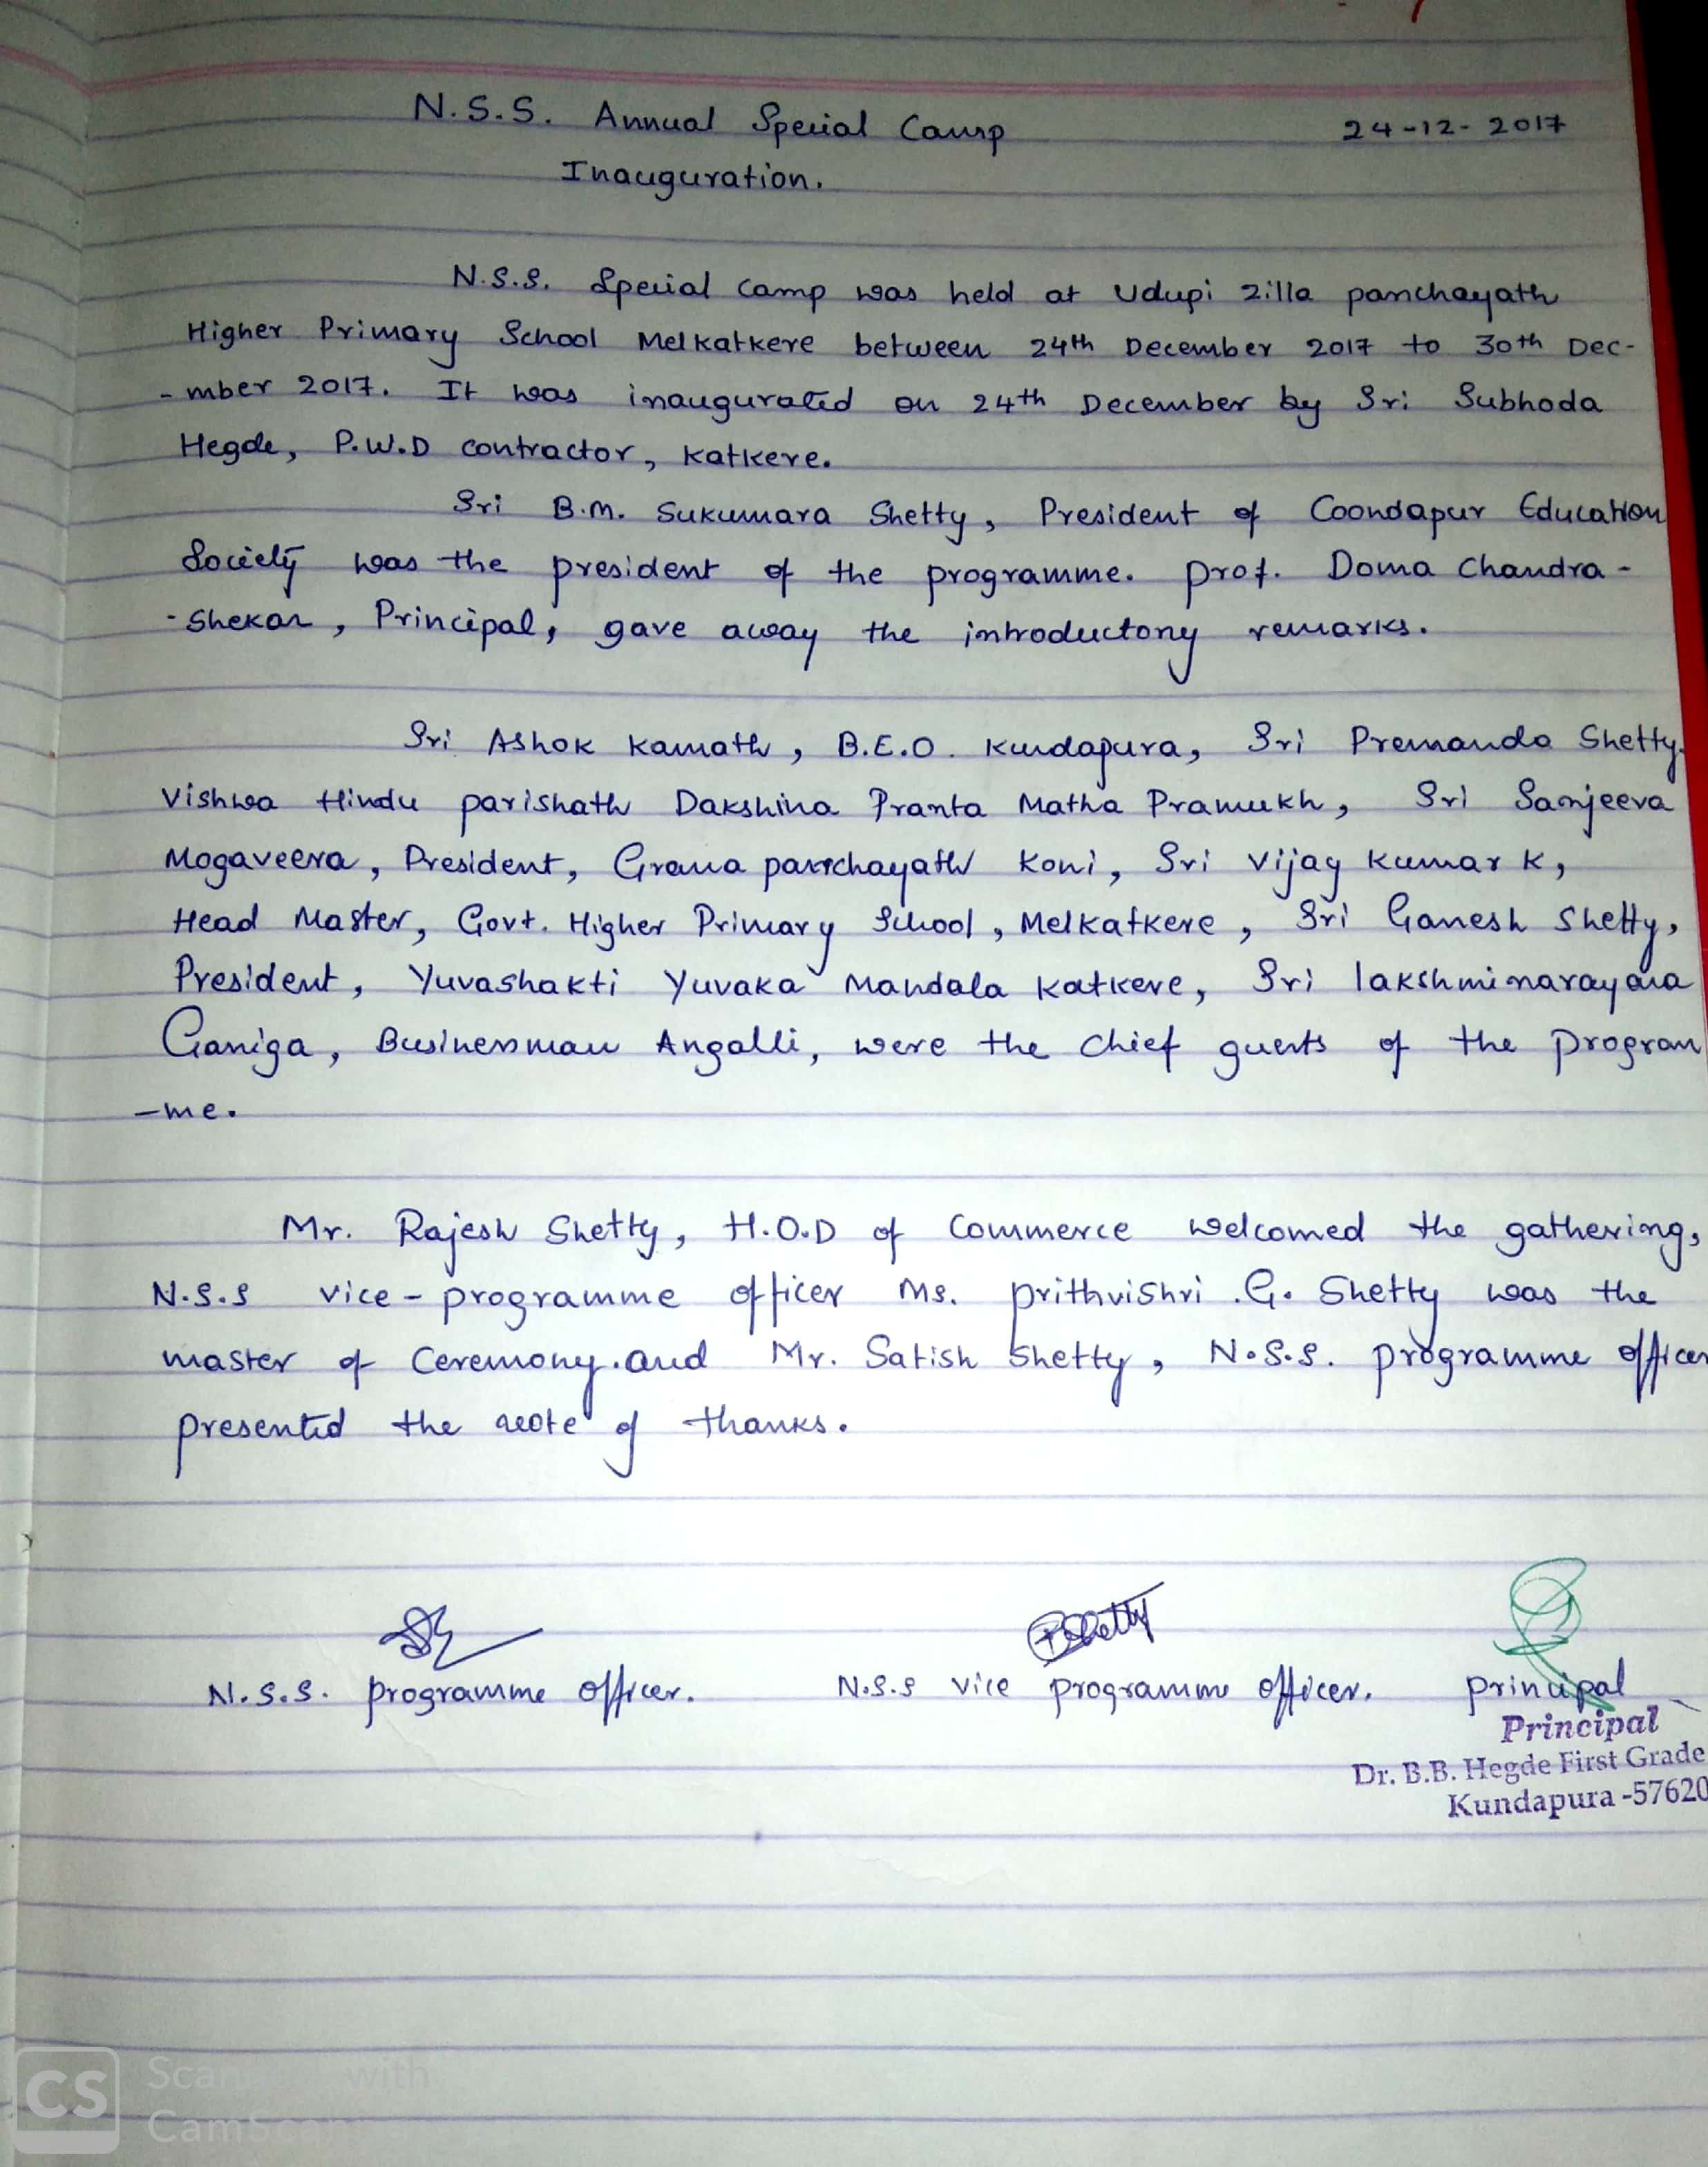 N.S.S. Annual Special Camp 24-12-2017
Inauguration.
N.S.S. Special Camp was held at Udupi Zilla panchayath
Higher Primary School Melkatkere between 24th December 2017 to 30th Dec-
-mber 2017. It was inaugurated on 24th December by Sri Subhoda
Hegde, P.W.D contractor, Katkere.
Sri B.M. Sukumara Shetty, President of Coondapur Education
Society was the president of the programme. prof. Doma Chandra-
-Shekar, Principal, gave away the introductory remarks.
Sri Ashok Kamath, B.E.O. Kundapura, Sri Premanda Shetty.
Vishwa Hindu parishath Dakshina Pranta Matha Pramukh, Sri Sanjeeva
Mogaveera, President, Grama panchayath Koni, Sri Vijay Kumar K,
Head Master, Govt. Higher Primary School, Melkatkere, Sri Ganesh Shetty,
President, Yuvashakti Yuvaka Mandala Katkere, Sri lakshminarayana
Ganiga, Businessman Angalli, were the chief guests of the program
-me.
Mr. Rajesh Shetty, H.O.D of Commerce welcomed the gathering,
N.S.S vice-programme officer Ms. prithvishri .G. Shetty was the
master of Ceremony. and Mr. Satish Shetty, N.S.S. programme officer
presented the note of thanks.
PShetty
N.S.S. programme officer. N.S.S vice programme officer. principal
Principal
Dr. B.B. Hegde First Grade
Kundapura -57620
CS Scanned with
CamScanner